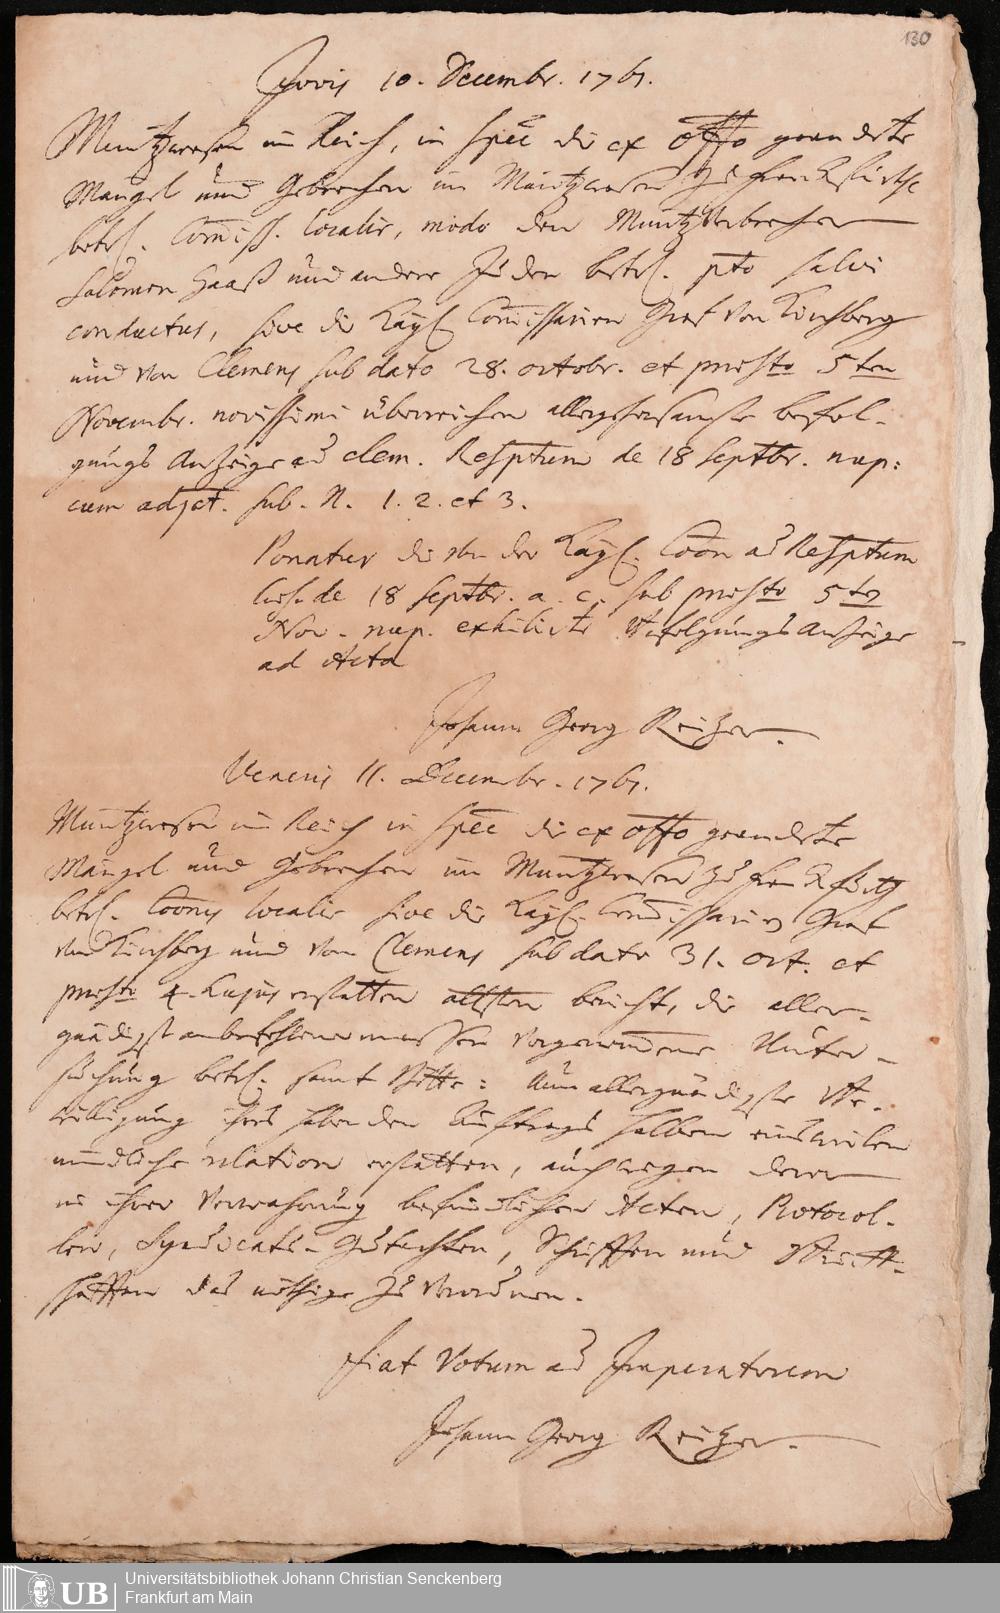 130
Jovis 10. Decembr. 1761.
Müntzwesen im Reich, in spec̄ die ex offo geanderte
Mängel und Gebrechen im Müntzwesen zu Franckfurth
betr. Commiss. localis, modo den Müntzverbrecher
Salomon Haas und andere Juden betr. pto salvi
conductus, sive die Kayſ. Commissarien Graf von Kirchberg
und von Clemens sub dato 28. octobr. et pnsto 5ten
Novembr. novissimi überreichen allergehorsamste befol-
gungs Anzeige ad clem. Rescptum de 18 Septbr. nup:
cum adjct. sub. N. 1. 2. et 3.
Ponatur die von der Kayſ. Coōn ad Rescptum
de 18 Septbr. a. c. sub pnsto 5ten
Nov. nup. exhibirte Befolgungs Anzeige
ad Acta
Johann Georg Reizer.
Veneris 11. Decembr. 1761.
Müntzwesen im Reich in spec̄ die ex offo geanderte
Mängel und Gebrechen im Müntzwesen zu Franckfurth
betr. Coōnis localis sive die Kayſ. Commissarien Graf
von Kirchberg und von Clemens sub dato 31. Oct. et
pnsto 4. hujus erstatten allstn bericht, die aller-
gnädigst anbefohlene massen vorgenommene Unter-
suchung betr. samt Bitte: Num allergnädigste Be-
willigung ihres habenden Auftrags halben einsweilen
mündliche relation erstatten, auch wegen deren
in ihrer Verwahrung befindlichen Acten, Protocol-
len, Syndicats-Gutachten, Schrifften und Brieff-
schafften das nöthige zu verordnen.
Fiat Votum ad Imperatorem
Johann Georg Reizer.
UB
Universitätsbibliothek Johann Christian Senckenberg
Frankfurt am Main